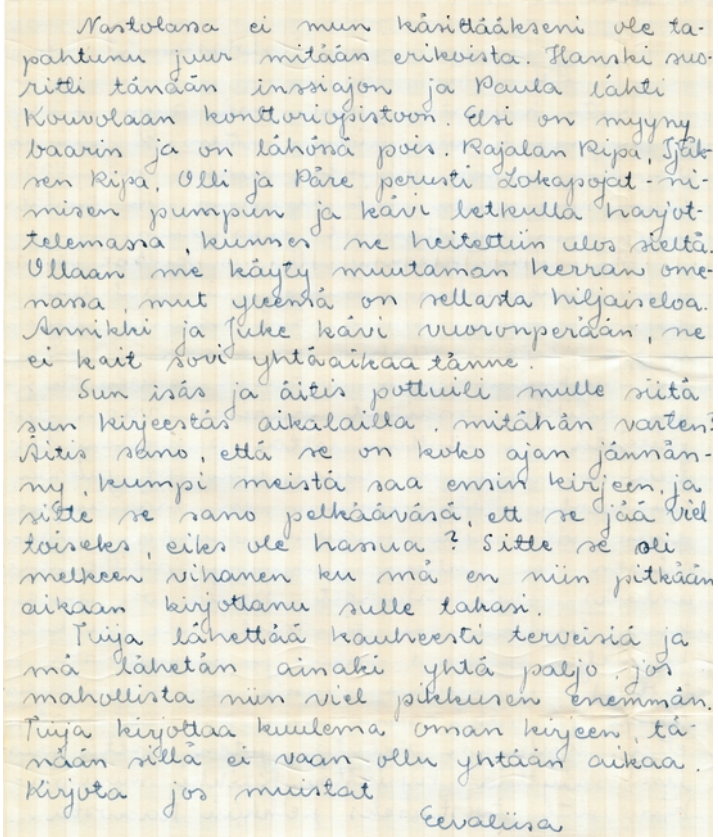 Nastolassa ei mun käsittääkseni ole ta-
pahtunu juur mitään erikoista. Hanski suo-
ritti tänään inssiajon ja Paula lähti
Kouvolaan konttoriopistoon. Elsi on myyny
baarin ja on lähössä pois. Rajalan Ripa, Sjäk-
sen Ripa, Olli ja Päre perusti Lokapojat-ni-
misen pumpun ja kävi letkulla harjot-
telemassa, kunnes ne heitettiin ulos sieltä.
Ollaan me käyty muutaman kerran ome-
nassa, mut yleensä on sellasta hiljaiseloa.
Annikki ja Juke kävi vuoronperään, ne
ei kait sovi yhtäaikaa tänne.
Sun isäs ja äitis pottuili mulle siitä
sun kirjeestäs aikalailla, mitähän varten?
Äitis sano, että se on koko ajan jännän-
ny, kumpi meistä saa ensin kirjeen, ja
sitte se sano pelkääväsä, ett se jää viel
toiseks, eiks ole hassua? Sitte se oli
melkeen vihanen ku mä en niin pitkään
aikaan kirjottanu sulle takasi.
Tuija lähettää kauheesti terveisiä ja
mä lähetän ainaki yhtä paljo, jos
mahollista niin viel pikkusen enemmän.
Tuija kirjottaa kuulema oman kirjeen, tä-
nään sillä ei vaan ollu yhtään aikaa.
Kirjota jos muistat
Eevaliisa